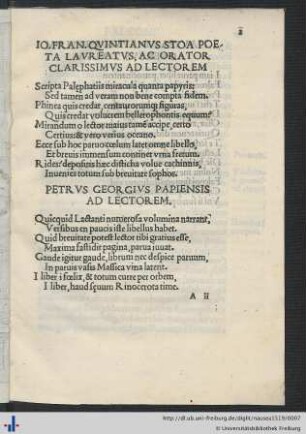 2
IO. FRAN. QVINTIANVS STOA POE-
TA LAVREATVS, AC ORATOR
CLARISSIMVS AD LECTOREM
Scripta Palephatii miracula quanta papyris:
Sed tamen ad verum non bene compta fidem.
Phinea quis credat, centaurorumq; figuras,
Quis credat volucrem bellerophontis equum?
Mirandum o lector maius tamē accipe, certo
Certius: & vero verius oceano.
Ecce sub hoc paruo cœlum latet omne libello,
Et breuis immensum continet vrna fretum.
Rides? depositis hæc disticha volue cachinnis,
Inuenies totum sub breuitate sophos.
PETRVS GEORGIVS PAPIENSIS
AD LECTOREM.
Quicquid Lactanti numerosa volumina narrant,
Versibus en paucis iste libellus habet.
Quid breuitate potest lector tibi gratius esse,
Maxima fastidit pagina, parua iuuat.
Gaude igitur gaude, librum nec despice paruum,
In paruis vasis Massica vina latent.
I liber i fœlix, & totum curre per orbem,
I liber, haud
Rinocerota time.
A II
http://dl.ub.uni-freiburg.de/diglit/nausea1519/0007
© Universitätsbibliothek Freiburg